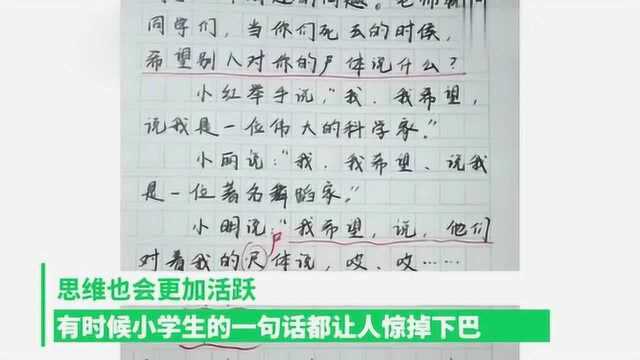 的问题。老师
同学们，当你们死去的时候，
希望别人对你的尸体说什么？
小红举手说，“我．我希望，
说我是一位伟大的科学家。”
小丽说：“我．我希望、说我
是一位著名舞蹈家。”
小明说：“我希望，说，他们
尸
对着我的尺体说，哎、哎……
思维也会更加活跃
有时候小学生的一句话都让人惊掉下巴